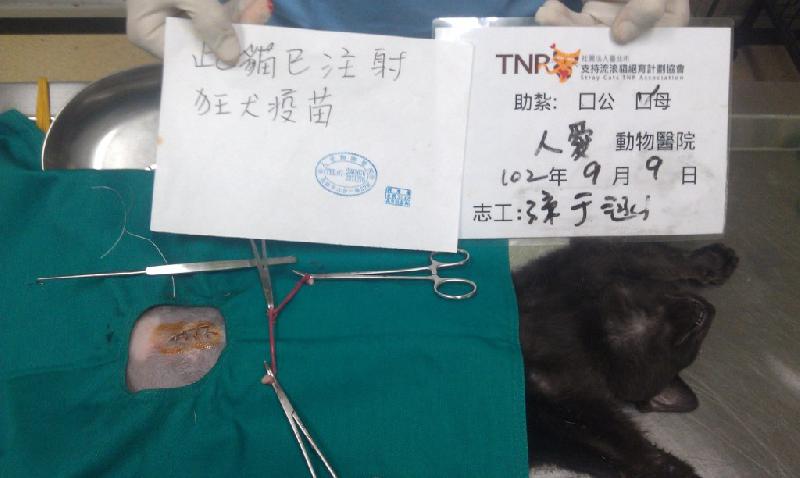 此貓已注射
狂犬疫苗
TNR
社團法人臺北市
支持流浪貓絕育計劃協會
Stray Cats TNR Association
助紮: 口公 口母
人愛 動物醫院
102年9月9日
志工: